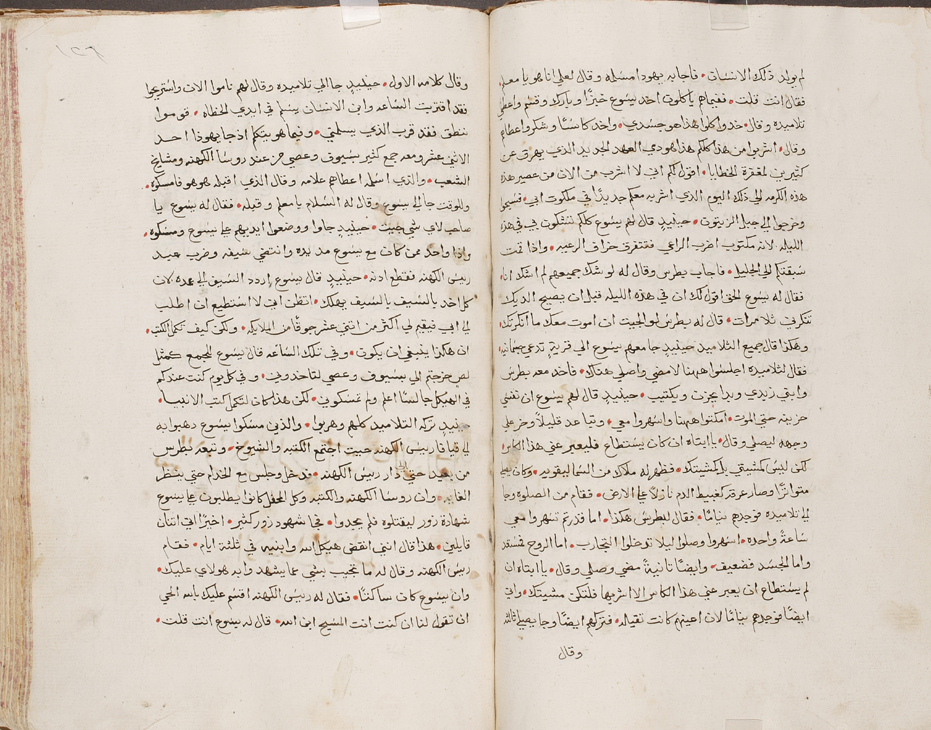 لم يولد ذلك الانسان • فاجابه يهودا مسلمه وقال لعلي انا هو يا معلم
فقال انت قلت • فبينما هم ياكلون اخد يسوع خبزًا وبارك وقسم واعطي
تلاميده وقال • خدوا كلوا هذا هو جسدي • واخد كاسًا وشكر واعطاهم
وقال • اشربوا من هذا كلكم هذا هو دمي العهد الجديد الذي يهرق عن
كثيرين لمغفرة الخطايا • اقول لكم اني لا اشرب من الان من عصير هذه
هذه الكرمه الي ذلك اليوم الذي اشربه معكم جديدًا في ملكوت ابي • فسبحوا
وخرجوا الي جبل الزيتون • حينيدٍ قال لهم يسوع كلكم تشكون في في هذه
الليله لانه مكتوب اضرب الراعي فتتفرق خراف الرعيه • واذا قمت
سبقتكم الي الجليل • فاجاب بطرس وقال له لو شك جميعهم لم اشك انا •
فقال له يسوع الحق اقول لك ان في هذه الليله قبل ان يصيح الديك
تنكرني ثلاث مرات • قال له بطرس لو الجيت ان اموت معك ما انكرتك •
وهكذا قال جميع التلاميد حينيدٍ جا معهم يسوع الي قريه تدعي جسمانيه
فقال لتلاميده اجلسوا ههنا لامضي واصلي هناك • فاخد معه بطرس
وابني زبدي وبدا يحزن ويكتيب • حينيدٍ قال لهم يسوع ان نفسي
حزينه حتي الموت • امكتوا ههنا واسهروا معي • وتباعد قليلًا وخر علي
وجهه ليصلي وقال • يا ابتاه ان كان يستطاع فليعبر عني هذا الكاس •
لكن ليس كمشيتي بل كمشيتك • فظهر له ملاك من السما ليقويه • وكان يصلي
متواترًا وصار عرقه كعبيط الدم نازلًا علي الارض • فقام من الصلوه وجا
الي تلاميده فوجدهم نيامًا • فقال لبطرس هكذا • اما قدرتم تسهروا معي
ساعةً واحده • اسهروا وصلوا ليلا تدخلوا التجارب • اما الروح فمستعد
واما الجسد فضعيف • وايضًا تانيةً مضي وصلي وقال • يا ابتاه ان
لم يستطاع ان يعبر عني هذا الكاس الا اشربها فلتكن مشيتك • واتي
ايضًا فوجدهم نيامًا لان اعينهم كانت تقيله • فتركهم ايضًا وجا يصلي تالته
وقال
١٢٦
وقال كلامه الاول • حينيدٍ جا الي تلاميده وقال لهم ناموا الان واستريحوا
فقد اقتربت الساعه وابن الانسان يسلم في ايدي الخطاه • قوموا
ننطلق فقد قرب الذي يسلمني • وفيما هو يتكلم اذ جا يهودا احد
الاتني عشر ومعه جمع كثير بسيوف وعصي من عند روسا الكهنه ومشايخ
الشعب • والذي اسلمه اعطاهم علامه وقال الذي اقبله هو هو فامسكوه •
وللوقت جا الي يسوع وقال له السلام يا معلم وقبله • فقال له يسوع يا
صاحب لاي شي جيت • حينيدٍ جاوا ووضعوا ايديهم علي يسوع ومسكوه •
واذا واحد ممن كان مع يسوع مد يده وانتضي سيفه وضرب عبد
رييس الكهنه فقطع ادنه • حينيدٍ قال يسوع اردد السيف الي غمده لان
كل اخد بالسيف بالسيف يهلك • اتظن اني لا استطيع ان اطلب
الي ابي فيقيم لي اكثر من اتني عشر جوقًا من الملايكه • ولكن كيف تكمل الكتب •
ان هكذا ينبغي ان يكون • وفي تلك الساعه قال يسوع للجمع كمثل
لص خرجتم الي بسيوف وعصي لتاخدوني • وفي كل يوم كنت عندكم
في الهيكل جالسًا اعلم ولم تمسكوني • لكن هذا كان لتكمل كتب الانبيا •
حينيدٍ تركه التلاميد كلهم وهربوا • والذين مسكوا يسوع دهبوا به
الي قيافا رييس الكهنه حيت اجتمع الكتبه والشيوخ • وتبعه بطرس
من بعيد حتي الي دار رييس الكهنه • فدخل وجلس مع الخدام حتي ينظر
الغايه • وان روسا الكهنه والكتبه وكل المحفل كانوا يطلبون علي يسوع
شهادة زور ليقتلوه فلم يجدوا • فجا شهود زور كثير • اخيرًا اتي اتنان
قايلين • هذا قال انني انقض هيكل الله وابنيه في ثلثة ايام • فقام
رييس الكهنه وقال له ما تجيب بشي عما يشهد وابه هولاي عليك •
وان يسوع كان ساكتًا • فقال له رييس الكهنه اقسم عليك بالله الحي
ان تقول لنا ان كنت انت المسيح ابن الله • قال له يسوع انت قلت •